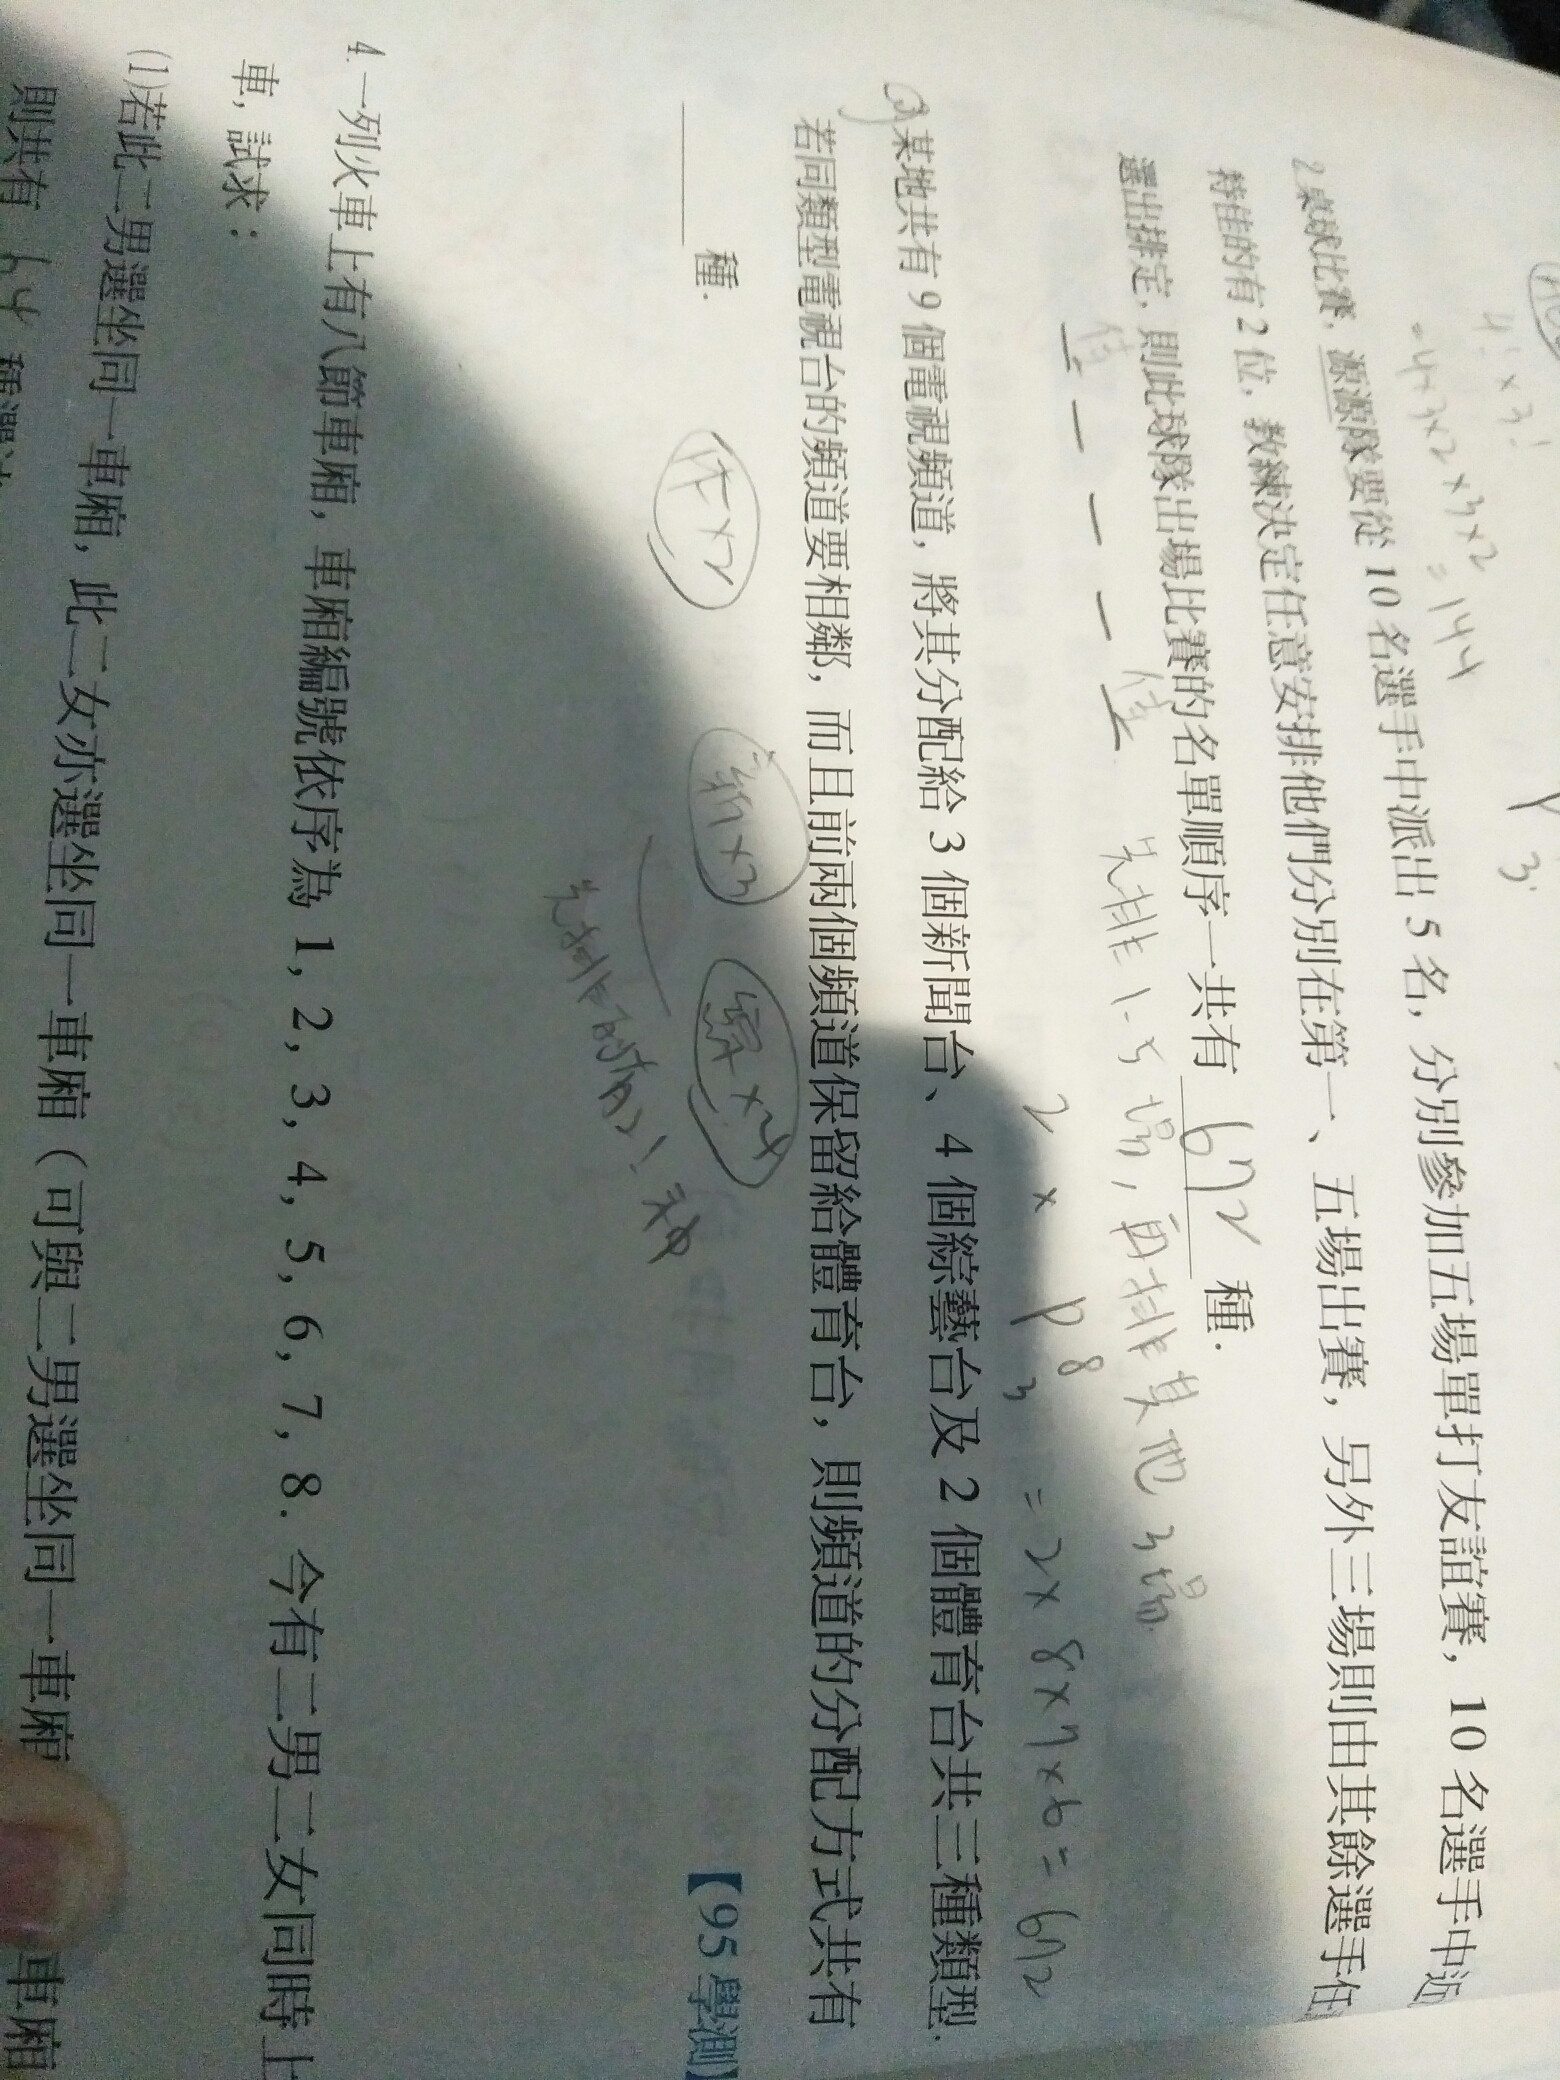 4! × 3!
= 4×3×2×3×2 = 144
P 3
2.桌球比賽，源源隊要從 10 名選手中派出 5 名，分別參加五場單打友誼賽，10 名選手中近
特佳的有 2 位，教練決定任意安排他們分別在第一、五場出賽，另外三場則由其餘選手任
選出排定，則此球隊出場比賽的名單順序一共有 672 種．
佳 佳 先排1、5場，再排其他3場
2 × P 8 3 = 2×8×7×6 = 672
3.某地共有 9 個電視頻道，將其分配給 3 個新聞台、4 個綜藝台及 2 個體育台共三種類型．
若同類型電視台的頻道要相鄰，而且前兩個頻道保留給體育台，則頻道的分配方式共有
種．
【95 學測】
体×2 新×3 綜×4
4.一列火車上有八節車廂，車廂編號依序為 1，2，3，4，5，6，7，8．今有二男二女同時上
車，試求：
(1)若此二男選坐同一車廂，此二女亦選坐同一車廂（可與二男選坐同一車廂
則共有 64 種
車廂